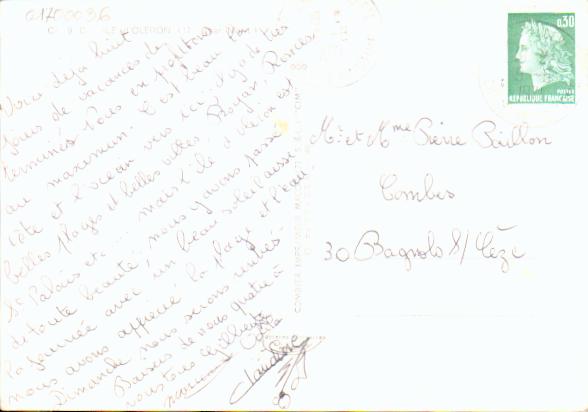 01700036
Voici déjà huit
jours de vacances de
terminés. Nous en profitons
au maximum. C'est beau la
côte et l'océan vers ici. Il y a de très
belles plages et belles villes. Royan, Ronces
St Palais etc... mais l'île d'oléron est
de toute beauté, nous y avons passé
la journée avec un beau soleil aussi
nous avons apprécié la plage et l'eau
Dimanche nous serons rentrés.
Baisers de nous quatre à
vous tous
Claudine
0,30
POSTES
REPUBLIQUE FRANÇAISE
Mr et Mme Pierre
Combes
30 Bagnols S/ Cèze